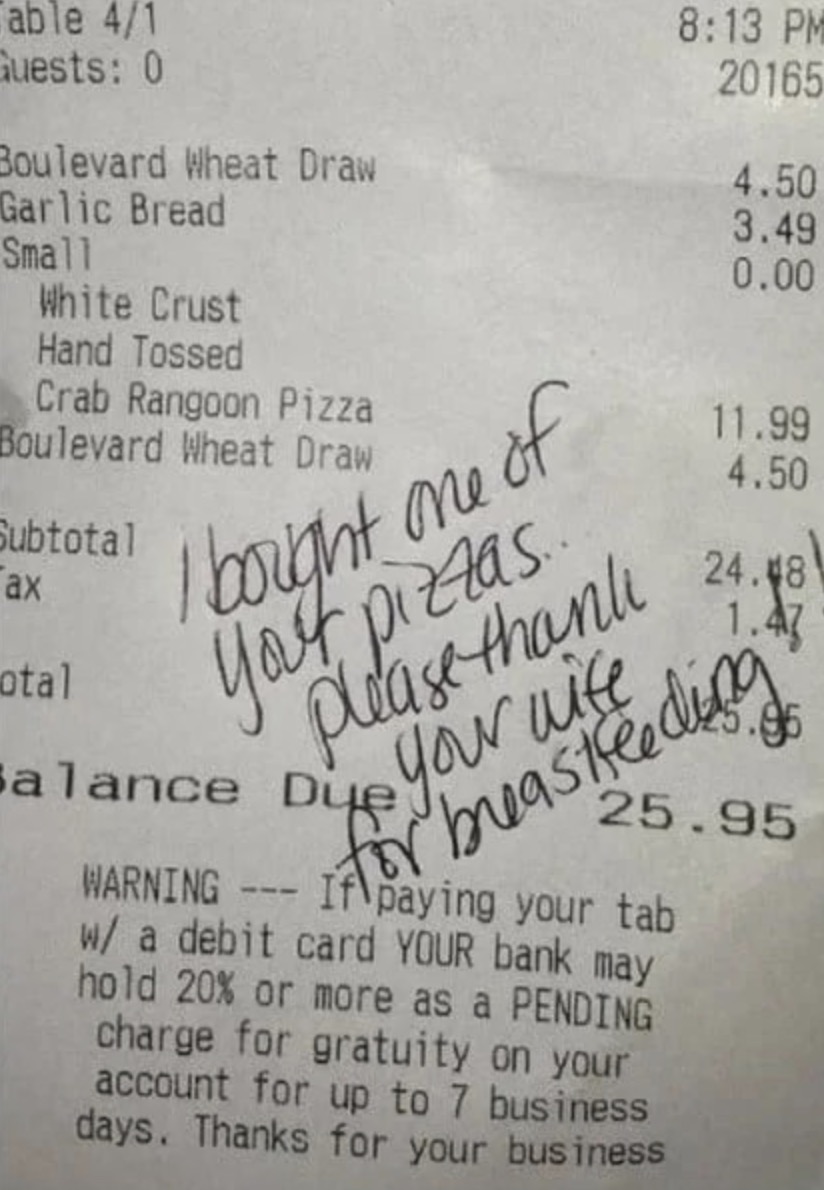 able 4/1 8:13 PM
Guests: 0 20165
Boulevard Wheat Draw 4.50
Garlic Bread 3.49
Small 0.00
White Crust
Hand Tossed
Crab Rangoon Pizza 11.99
Boulevard Wheat Draw 4.50
Subtotal 24.48
ax 1.47
otal 25.95
Balance Due 25.95
I bought one of
your pizzas..
please thank
your wife
for breastfeeding!
WARNING --- If paying your tab
w/ a debit card YOUR bank may
hold 20% or more as a PENDING
charge for gratuity on your
account for up to 7 business
days. Thanks for your business